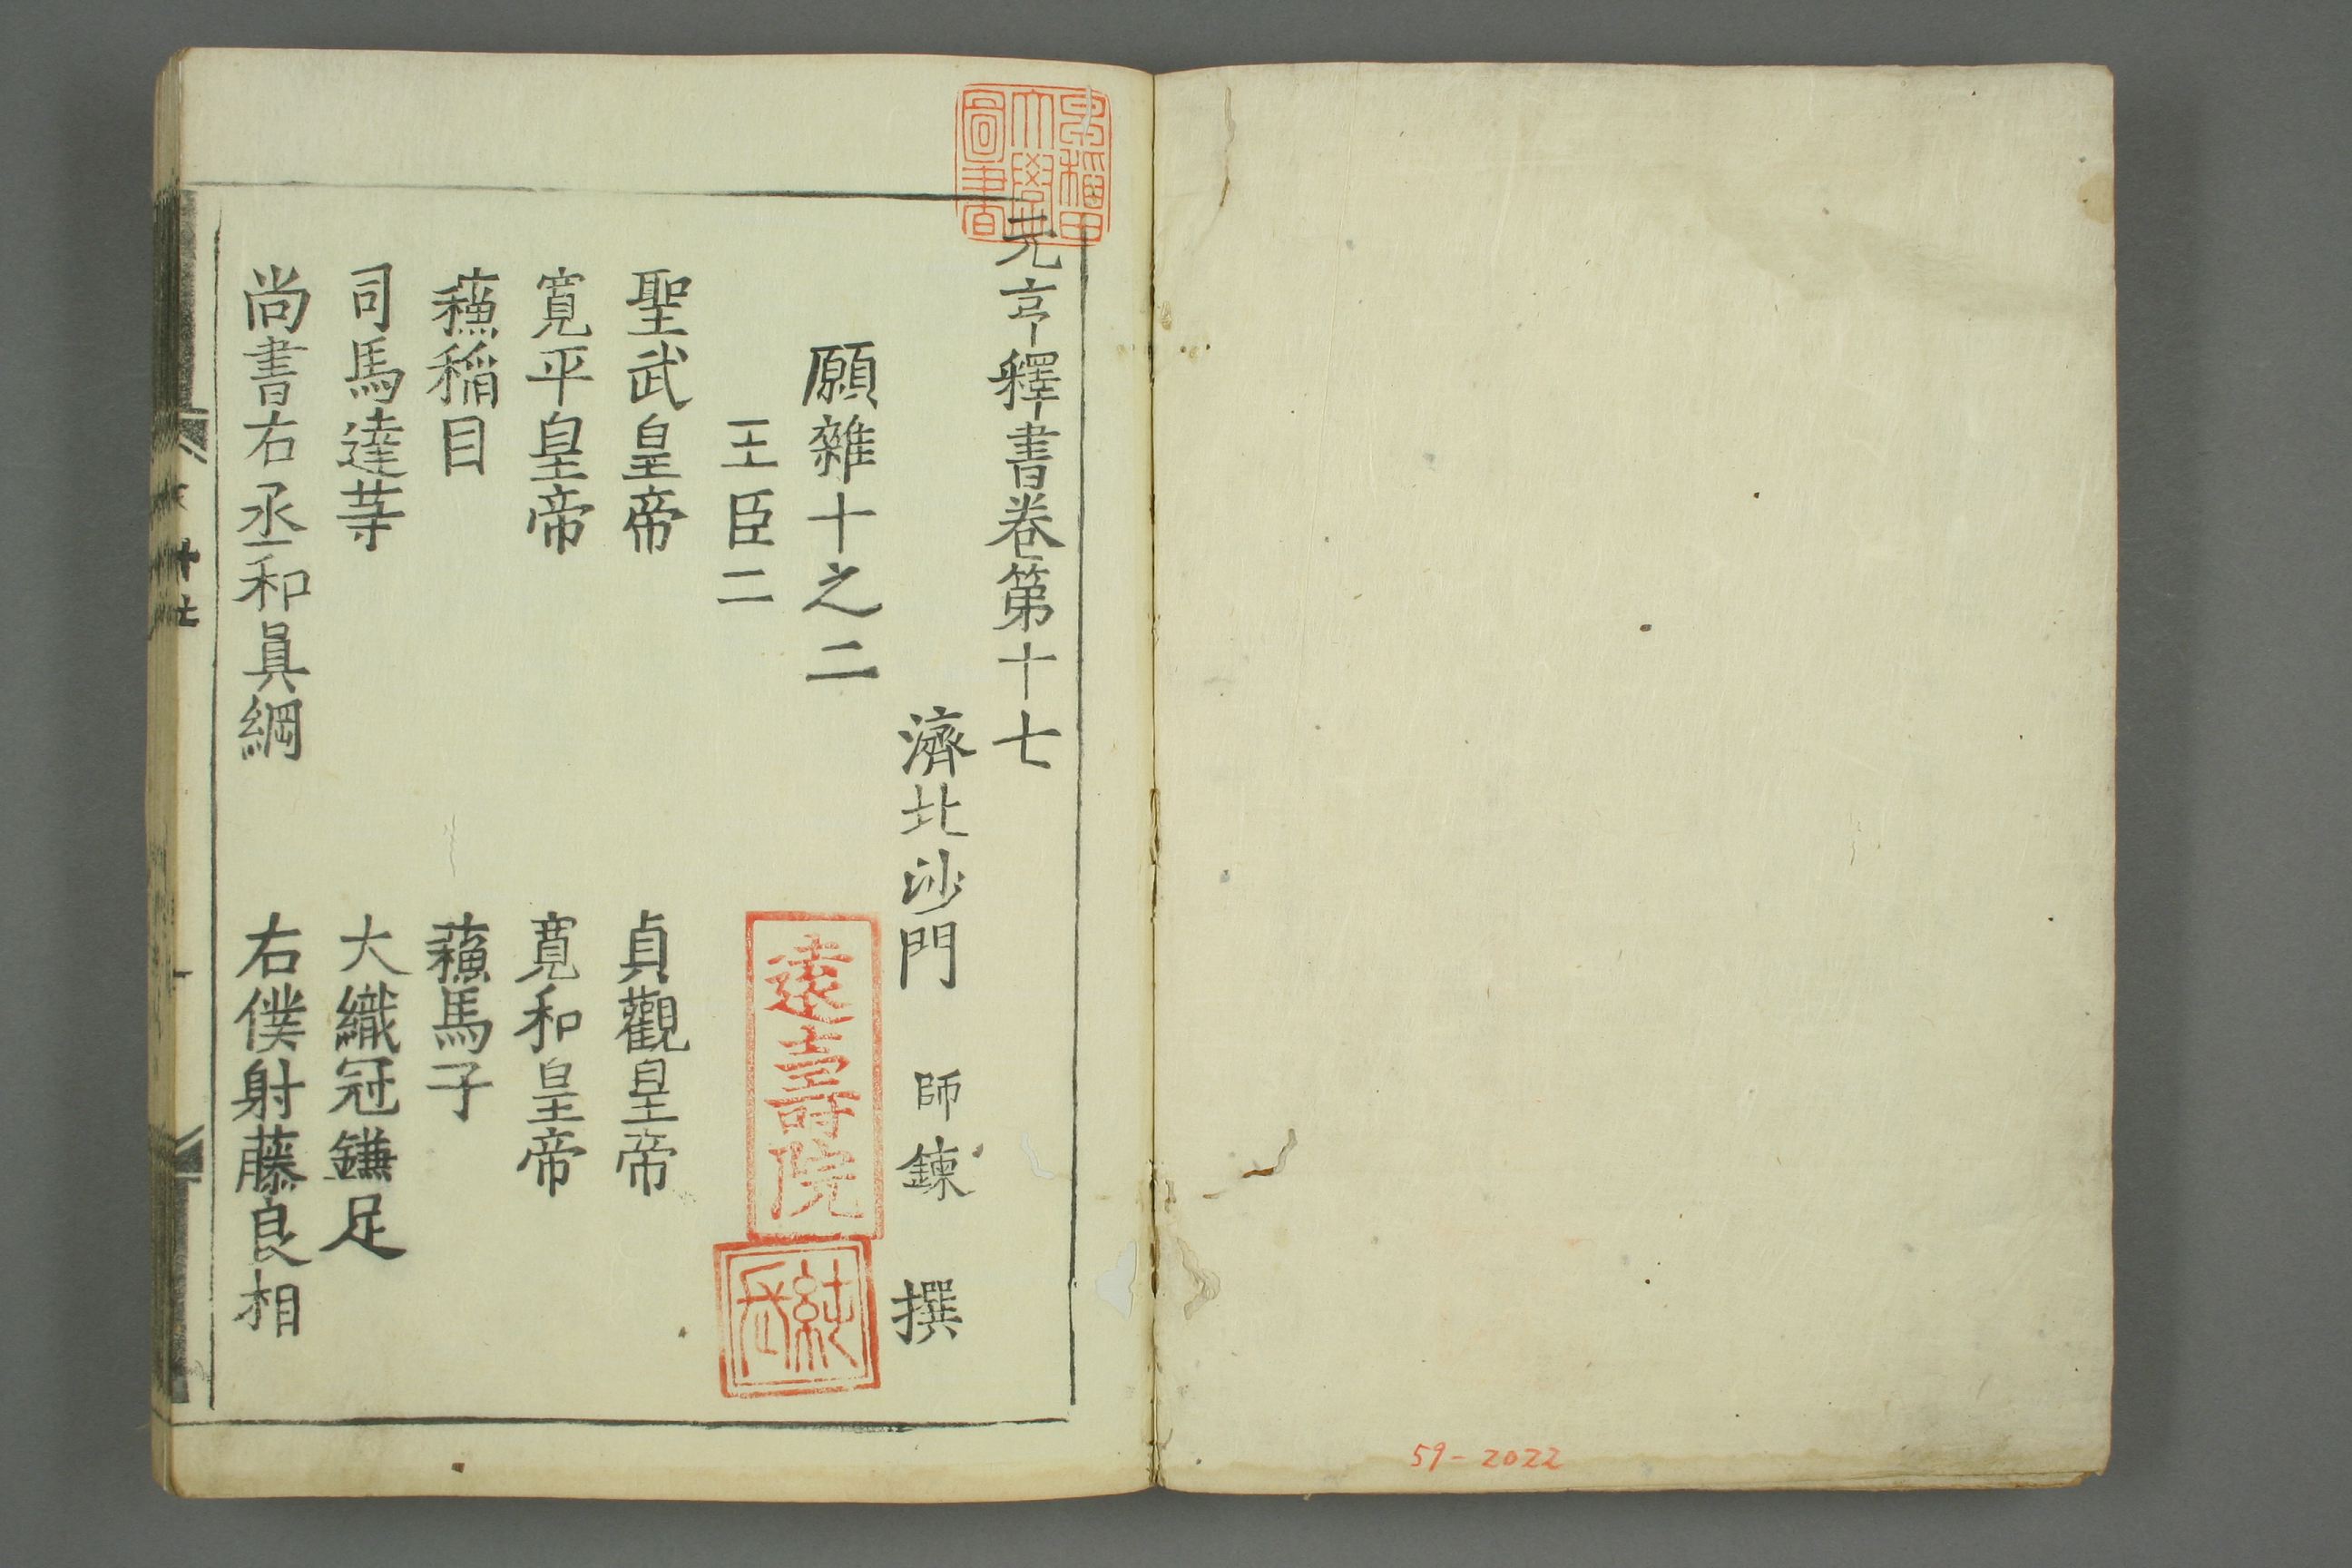 元亨釋書卷第十七
濟北沙門 師鍊 撰
願雜十之二
王臣二
聖武皇帝 貞觀皇帝
寬平皇帝 寬和皇帝
蘓稲目 蘓馬子
司馬達䓁 大織冠鎌足
尚書右丞和眞綱 右僕射藤良相
早稲田大學圖書
遠壽院
59-2022